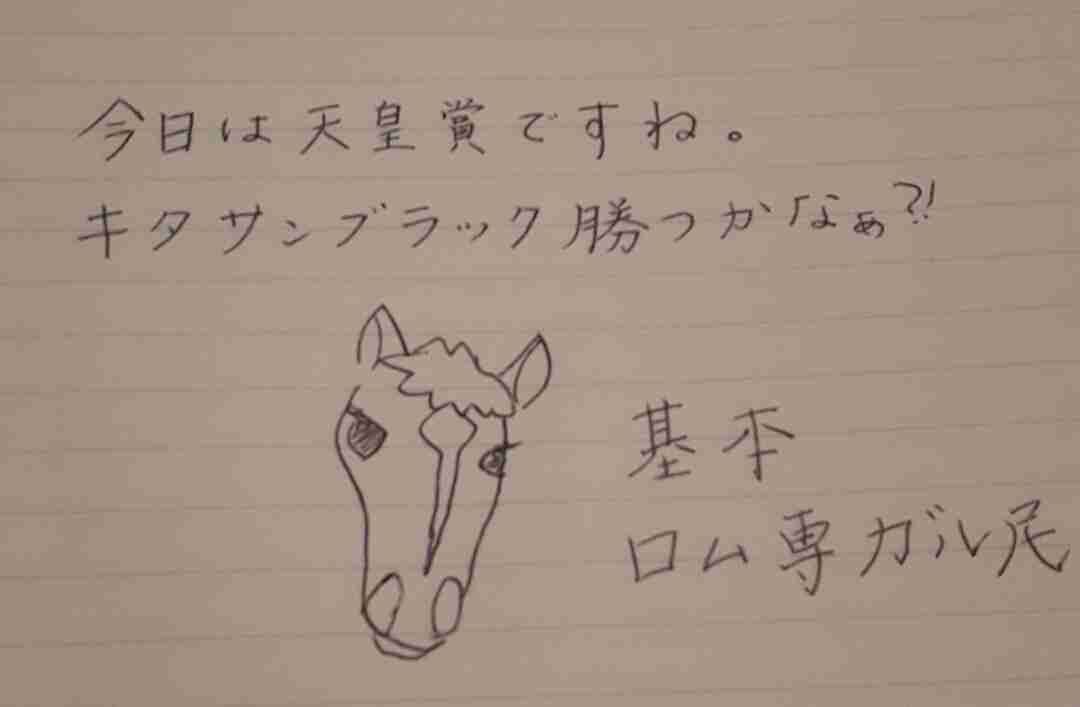 今日は天皇賞ですね。
キタサンブラック勝つかなぁ?!
基本
ロム専ガル民